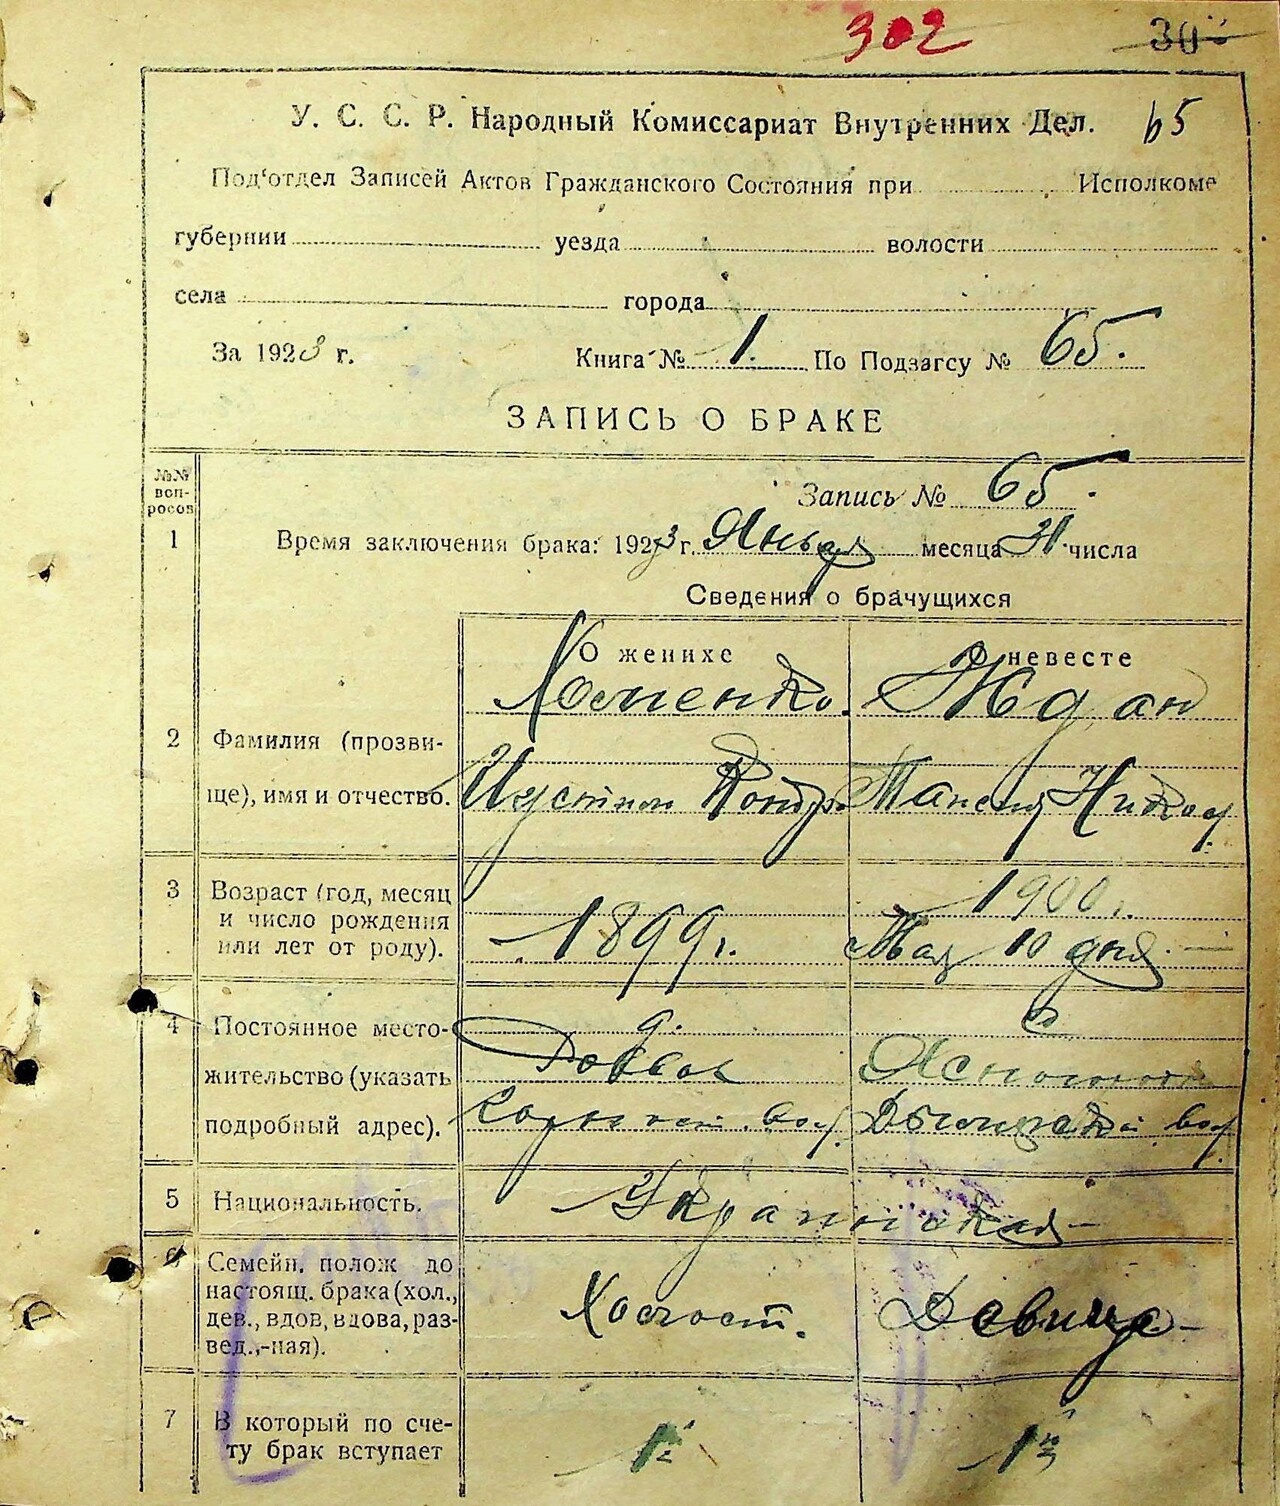 302 30
У. С. С. Р. Народный Комиссариат Внутренних Дел. 65
Под'отдел Записей Актов Гражданского Состояния при Исполкоме
губернии уезда волости
села города
За 1923 г. Книга № 1. По Подзагсу № 65.
ЗАПИСЬ О БРАКЕ
№№ воп-росов
Запись № 65.
1 Время заключения брака: 1923 г. Января месяца 31 числа
Сведения о брачущихся
О женихе О невесте
Хоменко. Ждан
2 Фамилия (прозви-
ще), имя и отчество. Иустин Кондр. Никол.
3 Возраст (год, месяц 1900 г.
и число рождения 1899 г. Мая 10 дня
или лет от роду).
4 Постоянное место-
жительство (указать
подробный адрес). вол. вол.
5 Национальность. Украинская
6 Семейн. полож до
настоящ. брака (хол.,
дев., вдов, вдова, раз- Холост. Девица
вед.,-ная).
7 В который по сче-
ту брак вступает 1й 1й